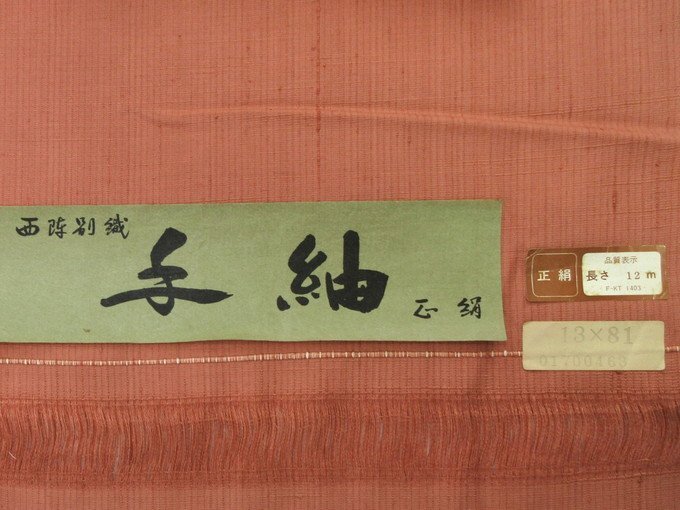 西陣別織
手紬
正絹
正絹
品質表示
長さ 12m
F-KT 1403
13×81
01700460